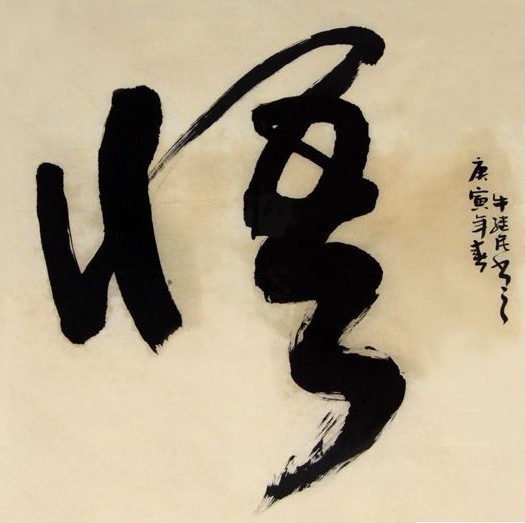 悟
庚寅年春
牛继民书之